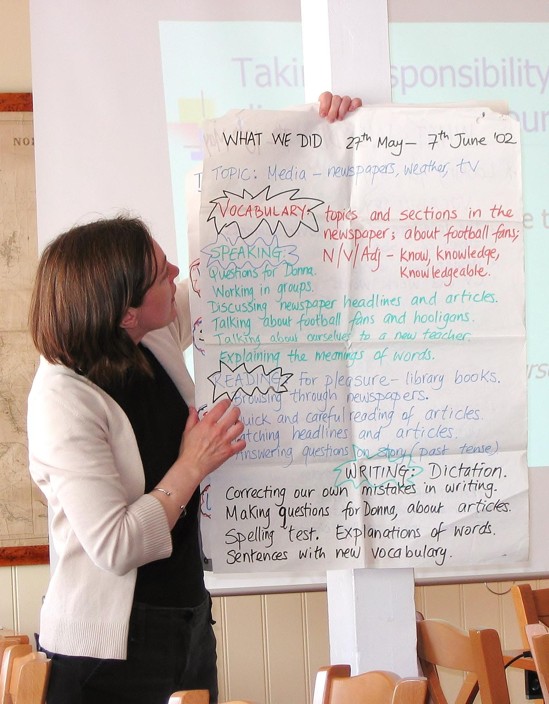 Taking responsibility
WHAT WE DID 27th May – 7th June '02
TOPIC: Media – newspapers, weather, TV
VOCABULARY: topics and sections in the
newspaper; about football fans;
N/V/Adj – know, knowledge,
knowledgeable.
SPEAKING:
Questions for Donna.
Working in groups.
Discussing newspaper headlines and articles.
Talking about football fans and hooligans.
Talking about ourselves to a new teacher.
Explaining the meanings of words.
READING: For pleasure – library books.
Browsing through newspapers.
Quick and careful reading of articles.
Matching headlines and articles.
Answering questions on story (past tense)
WRITING: Dictation.
Correcting our own mistakes in writing.
Making questions for Donna, about articles.
Spelling test. Explanations of words.
Sentences with new vocabulary.